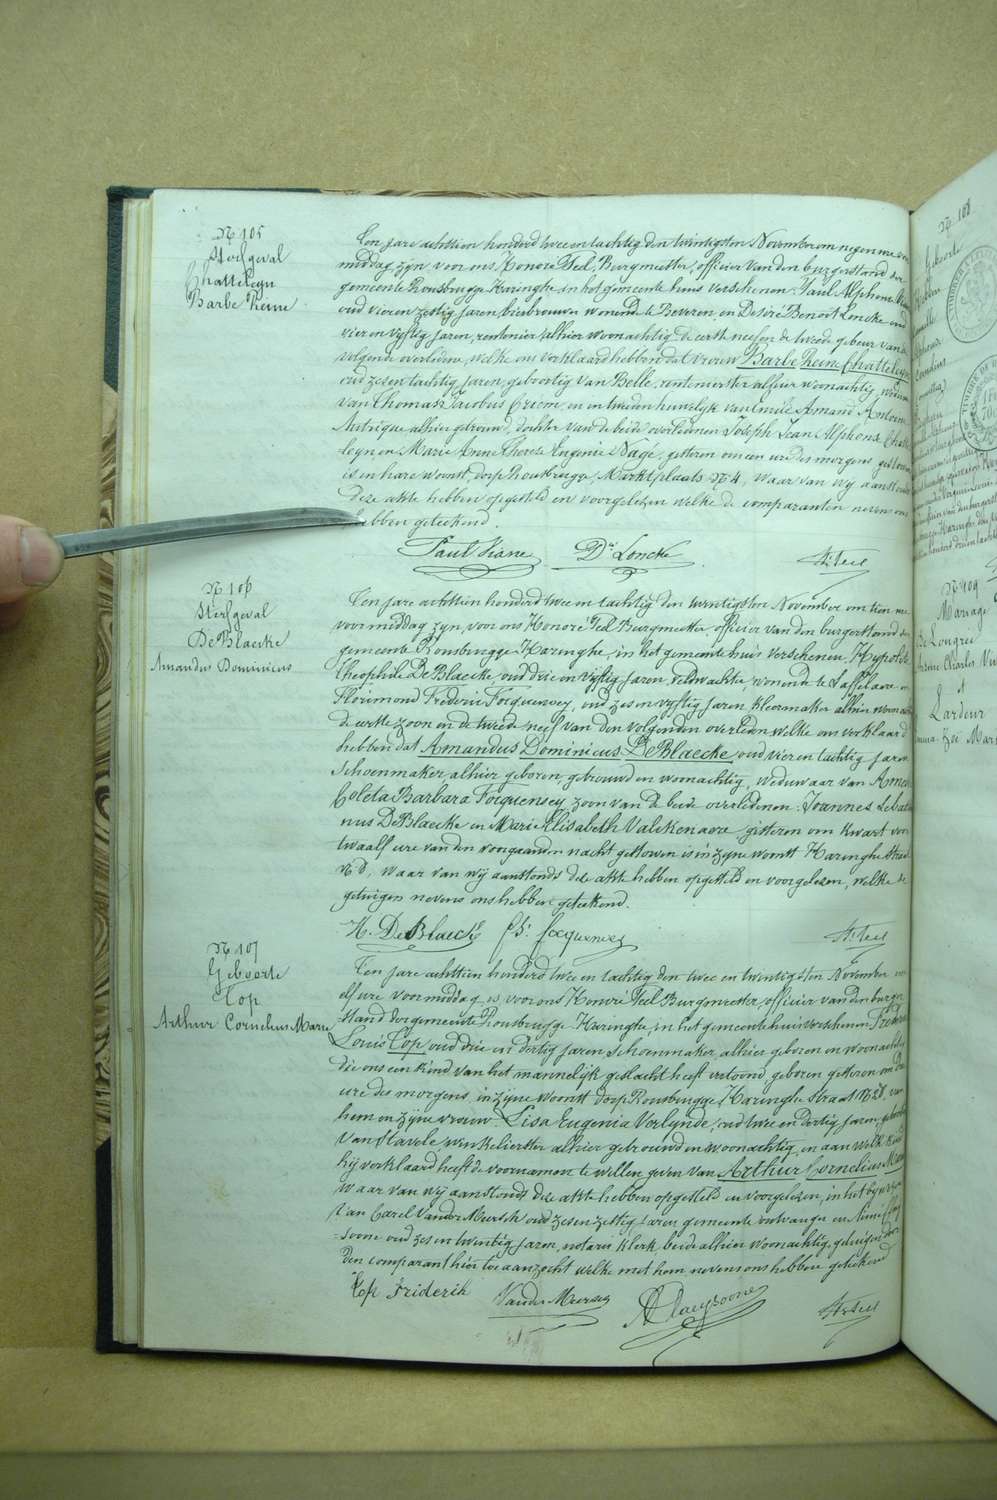 Nº 105
Sterfgeval
Chatteleyn
Barbe Reine
Ten jare achttien honderd twee en tachtig den twintigsten November om negen ure voor
middag zyn voor ons Honoré Teel, Burgmeester, officier van den burgerstand der
gemeente Rousbrugge Haringhe in het gemeente huis verschenen Paul Alphonse
oud vier en zestig jaren, bierbrouwer wonende te Beveren, en Desiré Benoit Loncke oud
vier en vyftig jaren, rentenier alhier woonachtig de eerste neef en de tweede gebuer van de
volgende overledene, welke ons verklaard hebben dat vrouw Barbe Reine Chatteleyn
oud zes en tachtig jaren, geboortig van Belle, rentenierster alhier woonachtig, weduwe
van Thomas Jacobus en in tweeden huwelyk van Emile Amand
alhier getrouwd, dochter van de beide overledenen Joseph Jean Alphonse Chatte
leyn en Marie Anne Therese Eugenie Nagé, gisteren om een ure des morgens gestorven
is in hare woonst, dorp Rousbrugge, Marktplaats Nº 4, waar van wy aanstonds
deze akte hebben opgesteld en voorgelezen welke de comparanten nevens ons
hebben geteekend.
Paul Viane Dré Loncke H. Teel
Nº 106
Sterfgeval
De Blaecke
Amandus Dominicus
Ten jare achttien honderd twee en tachtig den twintigsten November om tien ure
voormiddag zyn, voor ons Honoré Teel Burgmeester, officier van den burgerstand der
gemeente Rousbrugge Haringhe, in het gemeente huis verschenen Hypolite
Theophile De Blaecke, oud drie en vyftig jaren, veldwachter, wonende te Saffelaere en
Florimond Frederic Focquensey, oud zes en vyftig jaren kleermaker alhier woonachtig
de eerste zoon en de tweede neef van den volgenden overleden welke ons verklaard
hebben dat Amandus Dominicus De Blaecke, oud vier en tachtig jaren
schoenmaker, alhier geboren, getrouwd en woonachtig, weduwaar van
Coleta Barbara Focquensey, zoon van de beide overledenen Joannes Sebastia
nus De Blaecke en Marie Elisabeth Valckenaere, gisteren om kwart voor
twaalf ure van den voorgaanden nacht gestorven is in zyne woonst Haringhe Straat
waar van wy aanstonds deze akte hebben opgesteld en voorgelezen, welke de
getuigen nevens ons hebben geteekend.
H. De Blaecke Fs. Focquensey H. Teel
Nº 107
Geboorte
Top
Arthur Cornelius Marie
Ten jare achttien honderd twee en tachtig den twee en twintigsten November om
elf ure voormiddag, is voor ons Honoré Teel Burgmeester, officier van den burger
stand der gemeente Rousbrugge Haringhe, in het gemeente huis verschenen Frederik
Louis Top oud drie en dertig jaren Schoenmaker, alhier geboren en woonachtig
die ons een kind van het mannelijk geslacht heeft vertoond, geboren gisteren om drie
ure des morgens, in zijne woonst dorp Rousbrugge, Haringhe straat Nº 28, van
hem en zijne vrouw Lisa Eugenia Verlynde, oud twee en dertig jaren, geboortig
van Stavele winkelierster alhier getrouwd en woonachtig, en aan welk kind
hij verklaard heeft de voornamen te willen geven van Arthur Cornelius Marie
Waar van wij aanstonds deze akte hebben opgesteld en voorgelezen, in het bywezen
van Carel Vander Meersch oud zes en zestig jaren gemeente ontvanger en
soone oud zes en twintig jaren, notaris klerk, beide alhier woonachtig, getuigen door
den comparant hier toe aanzocht welke met hem nevens ons hebben geteekend
Top Friderik Vander Meersch A Claeysoone H. Teel
Nº 108
Geboorte
Nº 109
Mariage
De Longrée
Charles
et
Lardeur